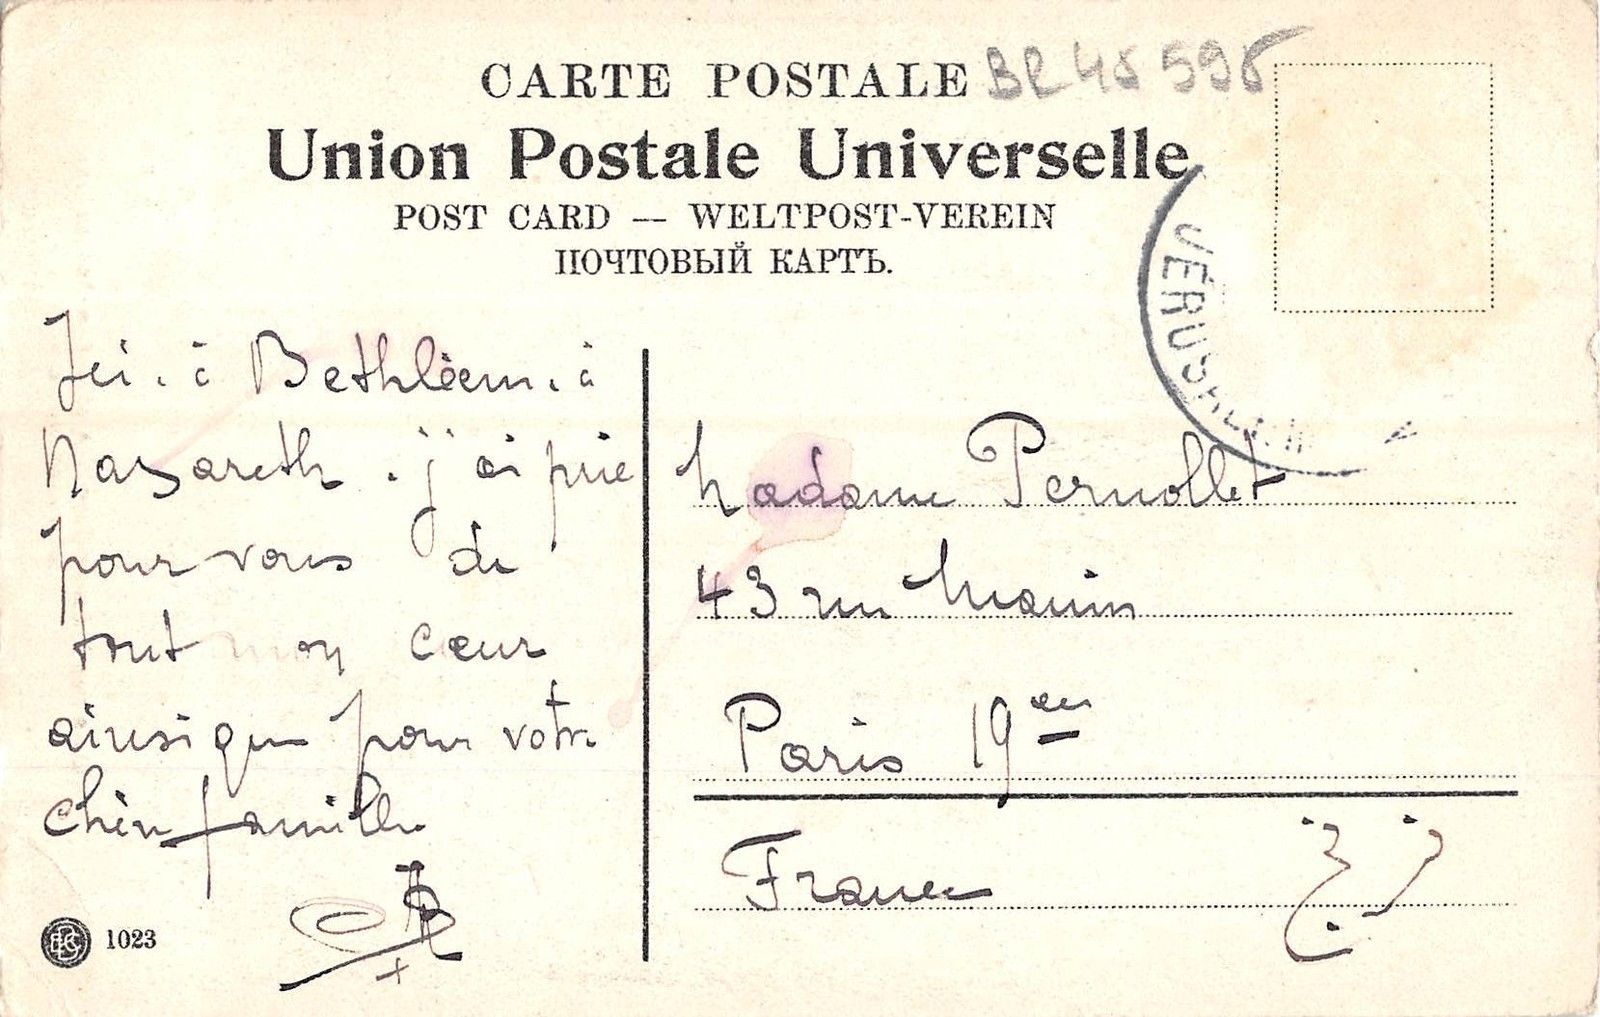 CARTE POSTALE BR 45 595
Union Postale Universelle
POST CARD — WELTPOST-VEREIN
ПОЧТОВЫЙ КАРТЪ.
JÉRUSALEM
Ici, à Bethléem, à
Nazareth. j'ai prié
pour vous de
tout mon cœur
ainsi que pour votre
chère famille
1023
Madame Pernollet
43 rue Manin
Paris 19
France